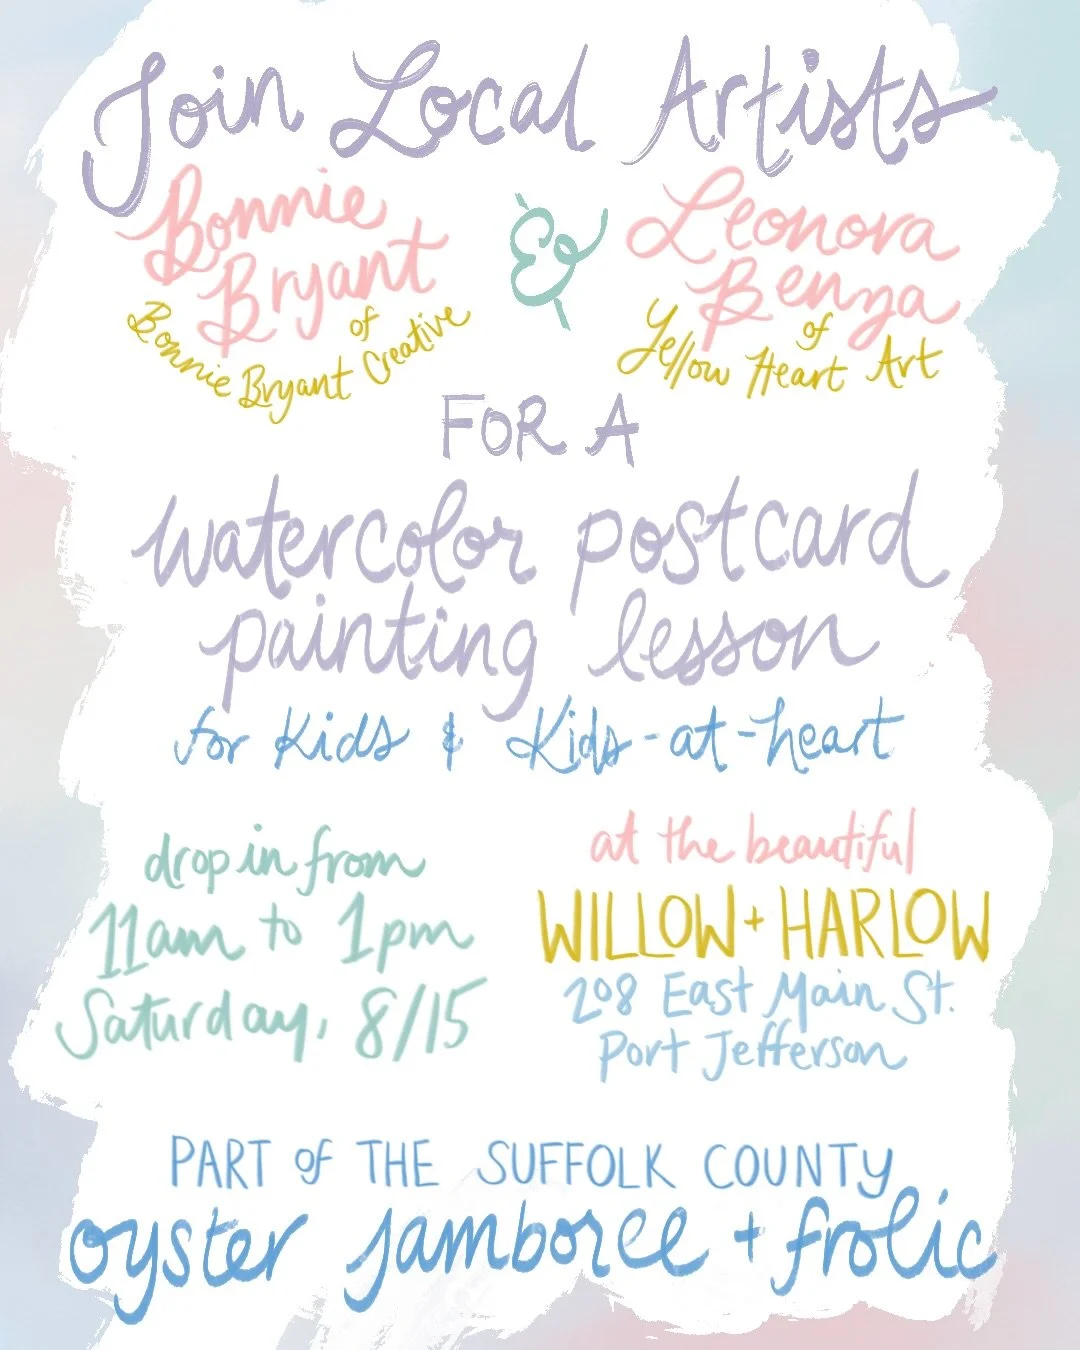 Join Local Artists
Bonnie Bryant of Bonnie Bryant Creative
&
Leonora Benza of Yellow Heart Art
FOR A
watercolor postcard
painting lesson
for Kids & Kids-at-heart
drop in from
11am to 1pm
Saturday, 8/15
at the beautiful
WILLOW + HARLOW
208 East Main St.
Port Jefferson
PART of THE SUFFOLK COUNTY
oyster jamboree + frolic